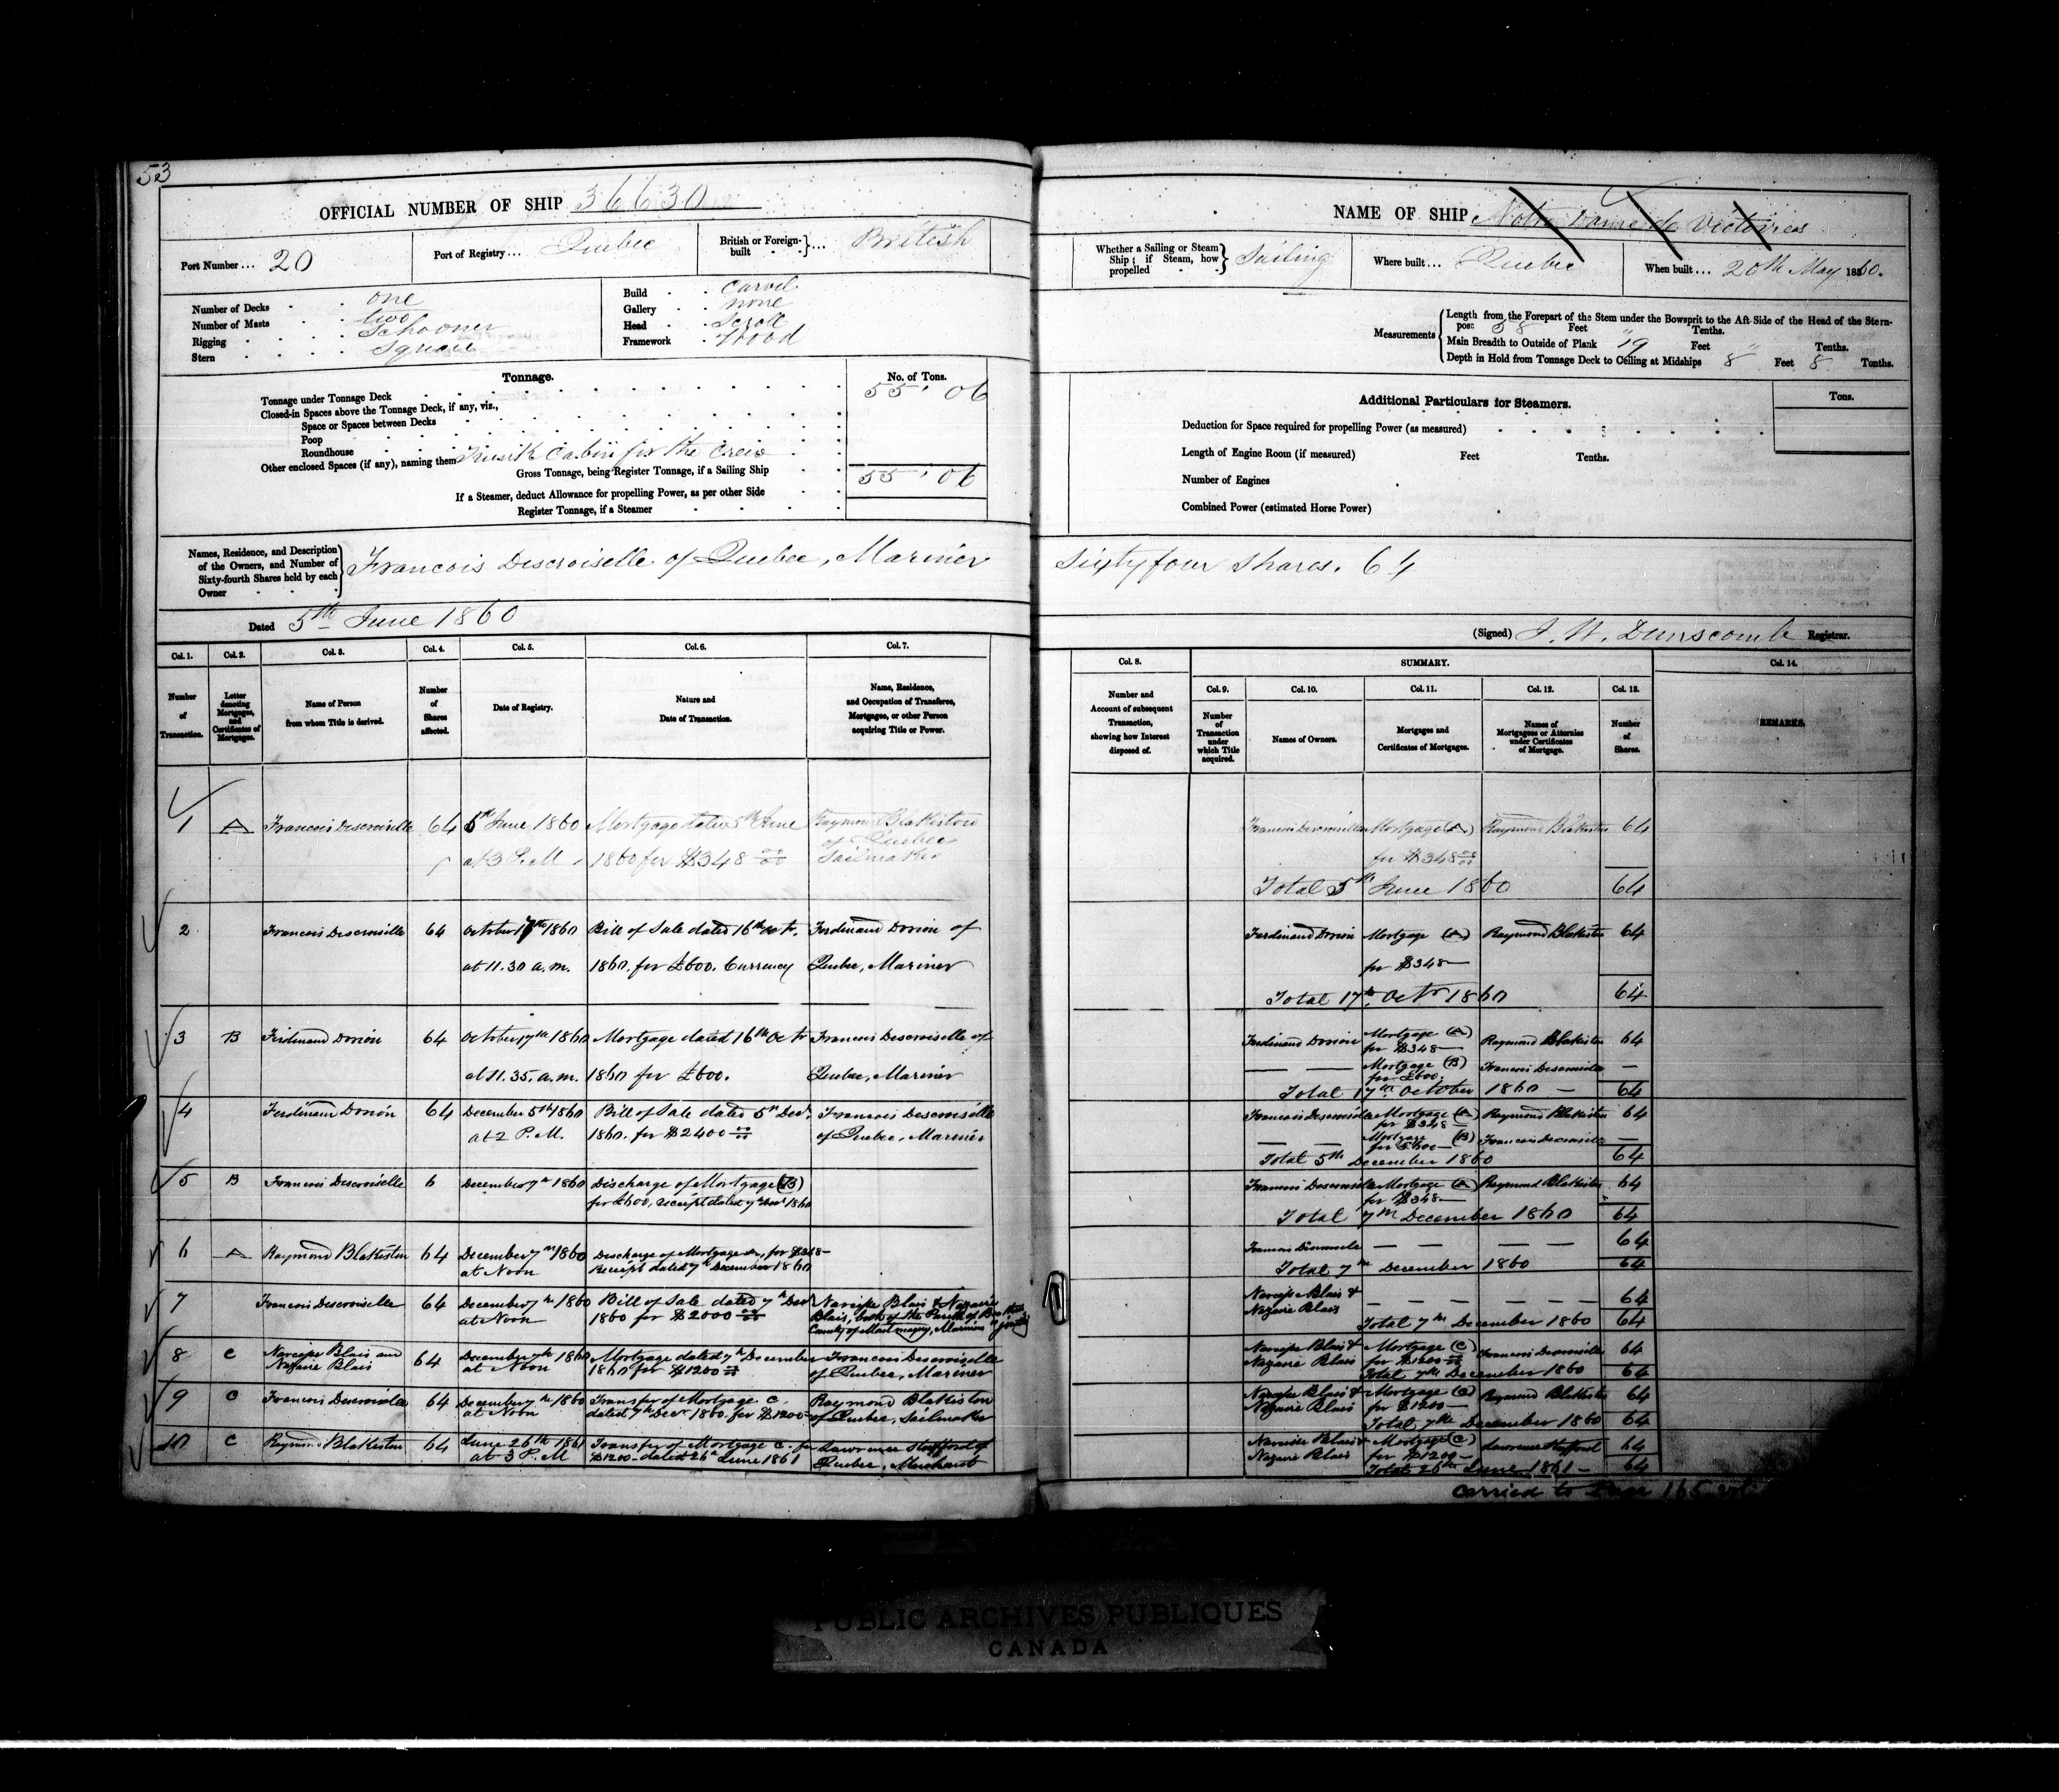 53
OFFICIAL NUMBER OF SHIP 36630
Port Number ... 20
Port of Registry ... Quebec
British or Foreign-built ... British
Number of Decks one
Number of Masts two
Rigging Schooner
Stern Square
Build Carvel
Gallery none
Head Scroll
Framework Wood
Tonnage.
No. of Tons.
Tonnage under Tonnage Deck 55 . 06
Closed-in Spaces above the Tonnage Deck, if any, viz.,
Space or Spaces between Decks
Poop
Roundhouse
Other enclosed Spaces (if any), naming them Trunk Cabin for the Crew
Gross Tonnage, being Register Tonnage, if a Sailing Ship 55 . 06
If a Steamer, deduct Allowance for propelling Power, as per other Side
Register Tonnage, if a Steamer
Names, Residence, and Description
of the Owners, and Number of
Sixty-fourth Shares held by each
Owner
Francois Descroiselle of Quebec, Mariner
Dated 5th June 1860
Col. 1. Col. 2. Col. 3. Col. 4. Col. 5. Col. 6. Col. 7.
Number of Transaction.
Letter denoting Mortgages, and Certificates of Mortgages.
Name of Person from whom Title is derived.
Number of Shares affected.
Date of Registry.
Nature and Date of Transaction.
Name, Residence, and Occupation of Transferee, Mortgagee, or other Person acquiring Title or Power.
1 A Francois Descroiselle 64 5th June 1860 Mortgage dated 5th June Raymond Blakiston
of Quebec
at 3 P.M. 1860 for $348 00/00 Sailmaker
2 Francois Descroiselle 64 October 17th 1860 Bill of Sale dated 16th Oct. Ferdinand Dorion of
at 11.30 a.m. 1860. for £600. Currency Quebec, Mariner
3 B Ferdinand Dorion 64 October 17th 1860 Mortgage dated 16th Oct Francois Descroiselle of
at 11.35. a.m. 1860 for £600. Quebec, Mariner
4 Ferdinand Dorion 64 December 5th 1860 Bill of Sale dated 5th Decr. Francois Descroiselle
at 2 P.M. 1860. for $2400 00/00 of Quebec, Mariner
5 B Francois Descroiselle 6 December 7th 1860 Discharge of Mortgage (B)
for £600, receipt dated 7th Decr 1860
6 A Raymond Blakiston 64 December 7th 1860 Discharge of Mortgage A, for $348-
at Noon Receipt dated 7th December 1860
7 Francois Descroiselle 64 December 7th 1860 Bill of Sale dated 7th Decr Narcisse Blais & Nazaire
at Noon 1860 for $2000 00/00 Blais, both of the Parish of
County of Montmagny, Mariners jointly
8 C Narcisse Blais and 64 December 7th 1860 Mortgage dated 7th December Francois Descroiselle
Nazaire Blais at Noon 1860 for $1200 00/00 of Quebec, Mariner
9 C Francois Descroiselle 64 December 7th 1860 Transfer of Mortgage C. Raymond Blakiston
at Noon dated 7th Decr 1860. for $1200- of Quebec, Sailmaker
10 C Raymond Blakiston 64 June 26th 1861 Transfer of Mortgage C. for Lawrence Stafford of
at 3 P.M $1200- dated 26th June 1861 Quebec, Merchant
NAME OF SHIP Notre Dame de Victoires
Whether a Sailing or Steam Ship; if Steam, how propelled Sailing
Where built ... Quebec
When built ... 20th May 1860.
Measurements
Length from the Forepart of the Stem under the Bowsprit to the Aft Side of the Head of the Stern-
post 58 Feet " Tenths.
Main Breadth to Outside of Plank 19 Feet " Tenths.
Depth in Hold from Tonnage Deck to Ceiling at Midships 8 Feet 8 Tenths.
Additional Particulars for Steamers.
Tons.
Deduction for Space required for propelling Power (as measured)
Length of Engine Room (if measured) Feet Tenths.
Number of Engines
Combined Power (estimated Horse Power)
Sixty four Shares. 64
(Signed) J. W. Dunscomb Registrar.
Col. 8. SUMMARY. Col. 14.
Col. 9. Col. 10. Col. 11. Col. 12. Col. 13.
Number and Account of subsequent Transaction, showing how Interest disposed of.
Number of Transaction under which Title acquired.
Names of Owners.
Mortgages and Certificates of Mortgages.
Names of Mortgagees or Attornies under Certificates of Mortgage.
Number of Shares.
REMARKS.
Francois Descroiselle Mortgage (A) Raymond Blakiston 64
for $348 00/00
Total 5th June 1860 64
Ferdinand Dorion Mortgage (A) Raymond Blakiston 64
for $348-
Total 17th Octr 1860 64
Ferdinand Dorion Mortgage (A) Raymond Blakiston 64
for $348-
Mortgage (B) Francois Descroiselle —
for £600.
Total 17th October 1860 — 64
Francois Descroiselle Mortgage (A) Raymond Blakiston 64
for $348-
Mortgage (B) Francois Descroiselle —
for £600-
Total 5th December 1860 64
Francois Descroiselle Mortgage (A) Raymond Blakiston 64
for $348-
Total 7th December 1860 64
Francois Descroiselle — — — — 64
Total 7th December 1860 64
Narcisse Blais & — — — — 64
Nazaire Blais
Total 7th December 1860 64
Narcisse Blais & Mortgage (C) Francois Descroiselle 64
Nazaire Blais for $1200 00/00
Total 7th December 1860 64
Narcisse Blais & Mortgage (C) Raymond Blakiston 64
Nazaire Blais for $1200-
Total 7th December 1860 64
Narcisse Blais & Mortgage (C) Lawrence Stafford 64
Nazaire Blais for $1200-
Total 26th June 1861- 64
Carried to Page 165
PUBLIC ARCHIVES PUBLIQUES
CANADA